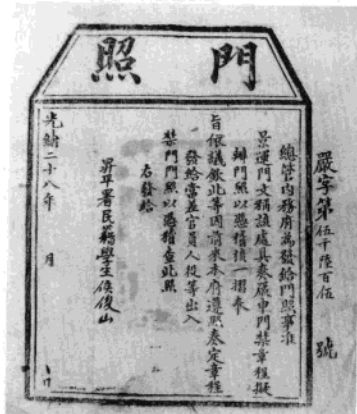 門照
嚴字第伍千陸百伍號
總管內務府為發給門照事准
景運門文稱該處具奏嚴申門禁章程擬
辦門照以憑稽核一摺奉
旨依議欽此等因前來本府遵照奏定章程
發給當差官員人役等出入
禁門門照以憑稽查此照
右發給
昇平署民籍學生侯俊山
光緒二十八年 月